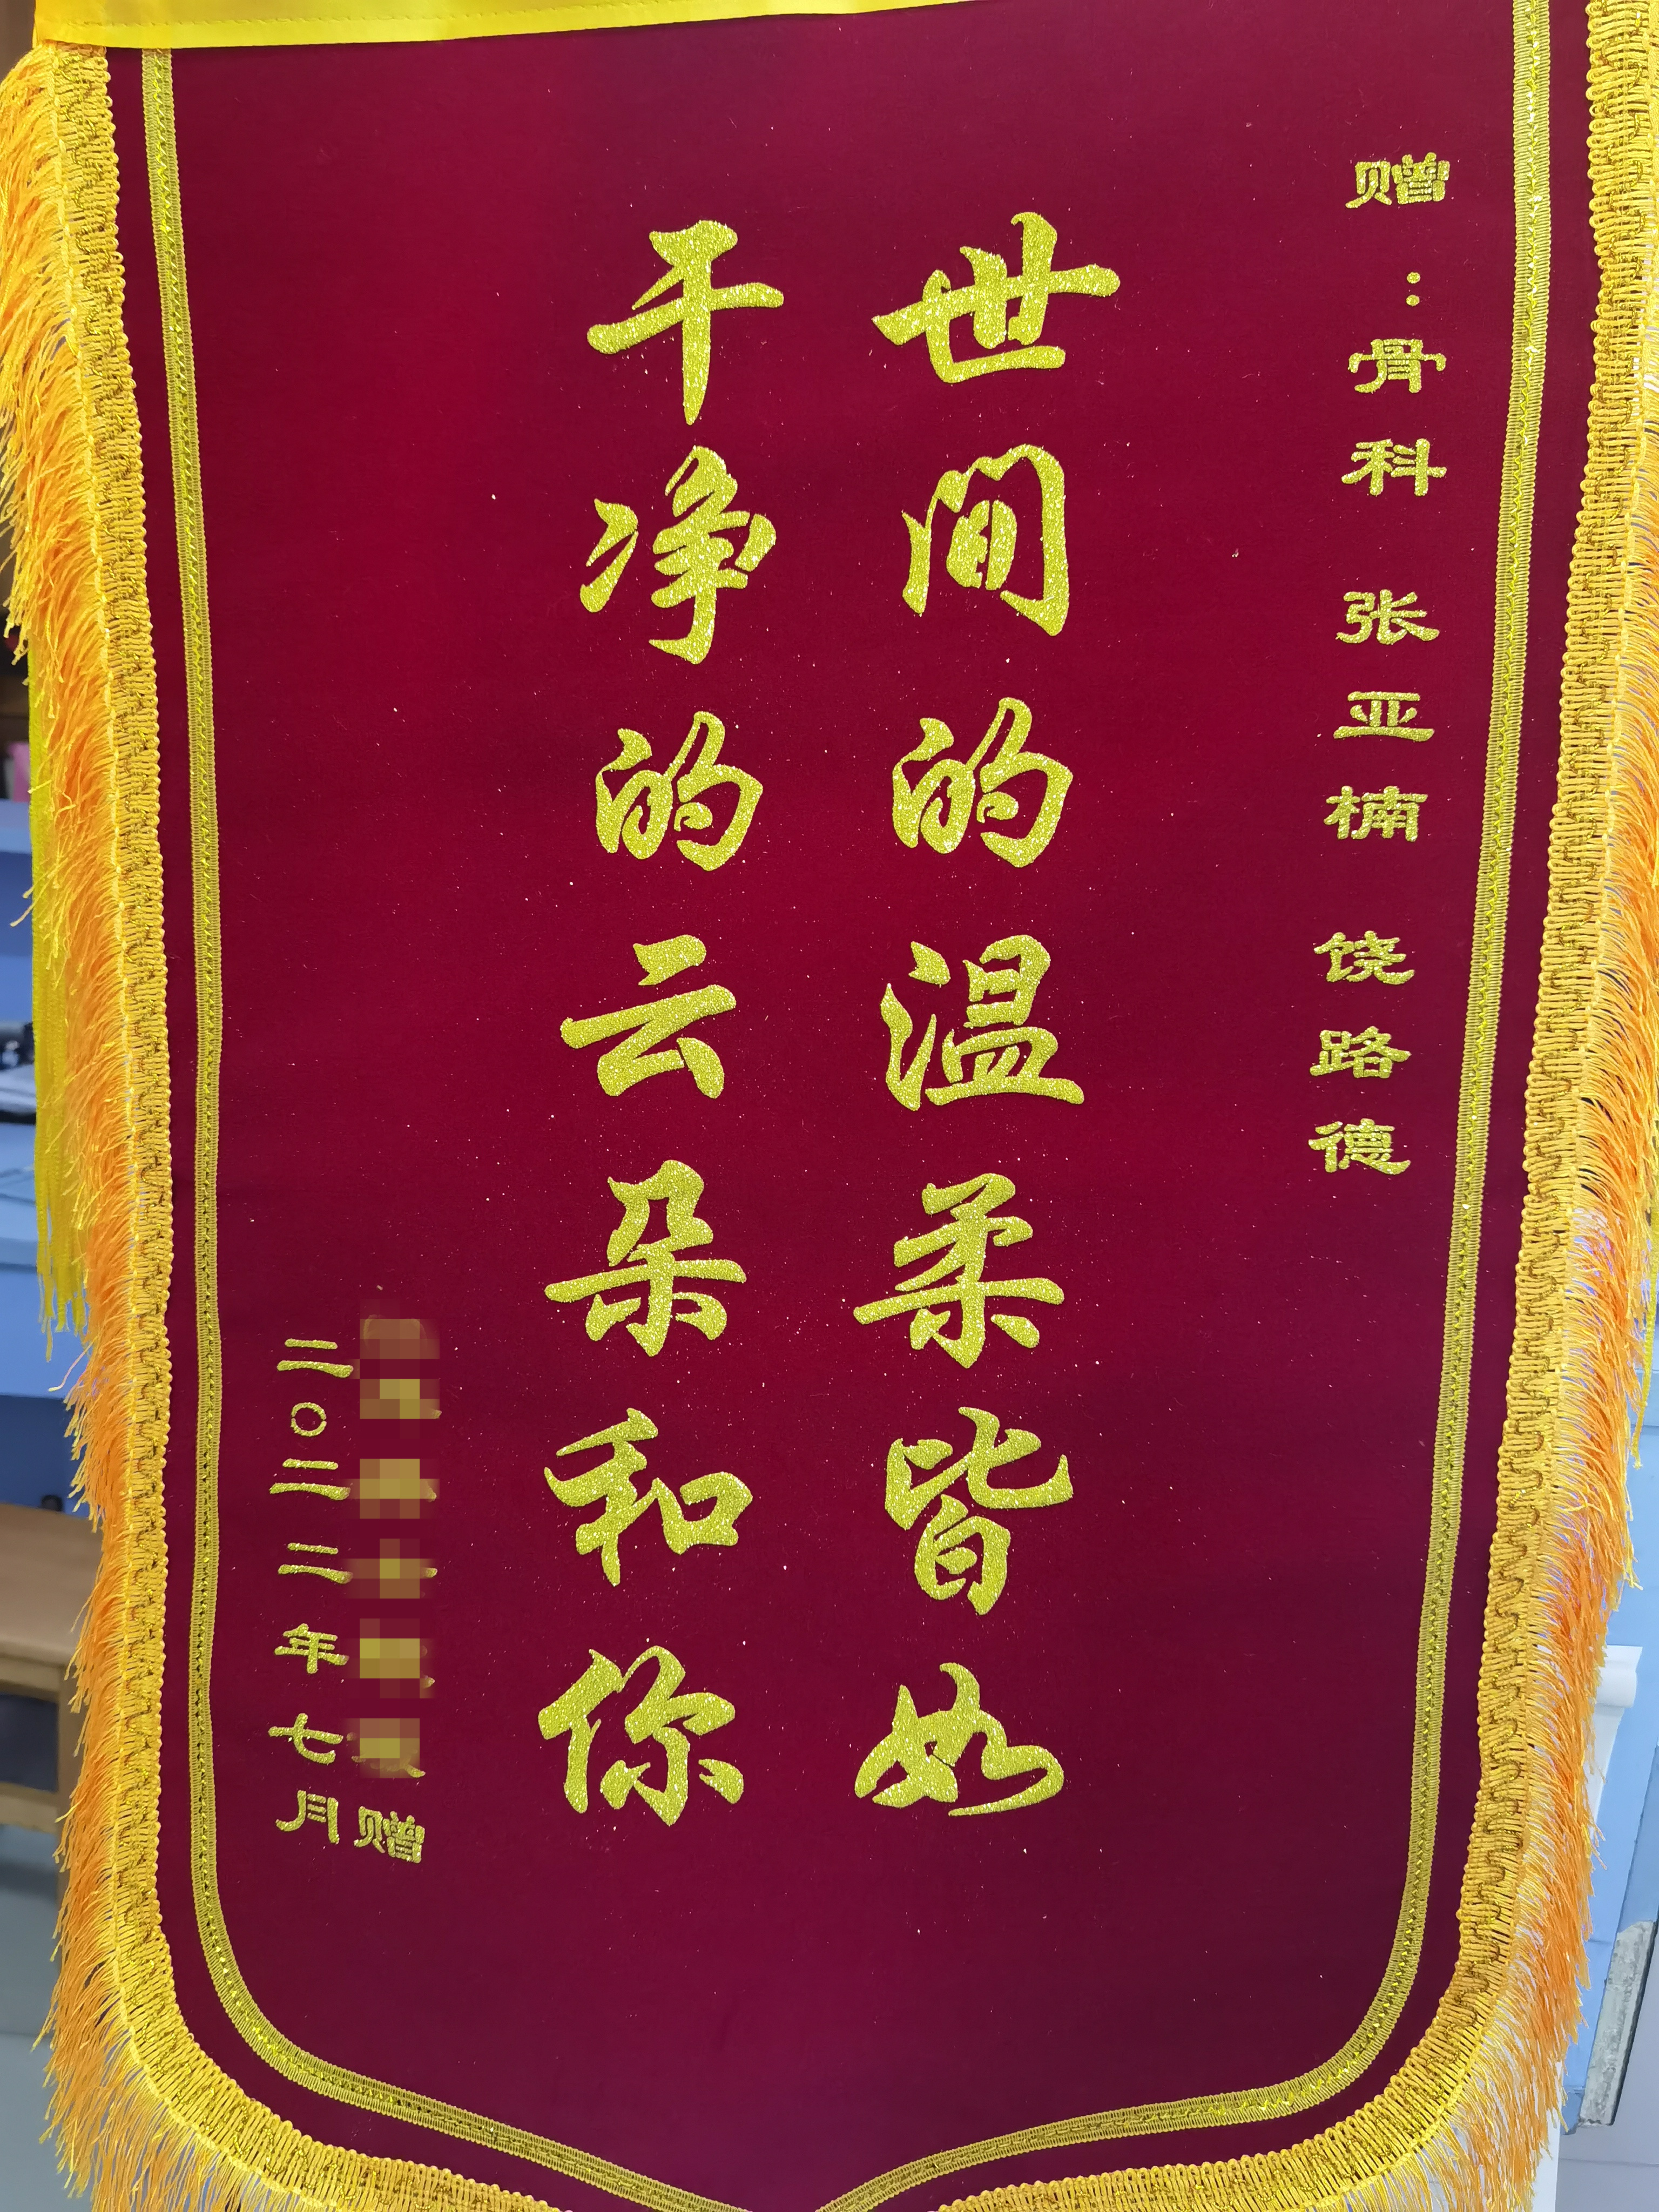 赠：骨科 张亚楠 饶路德
世间的温柔皆如
干净的云朵和你
赠
二〇二二年七月